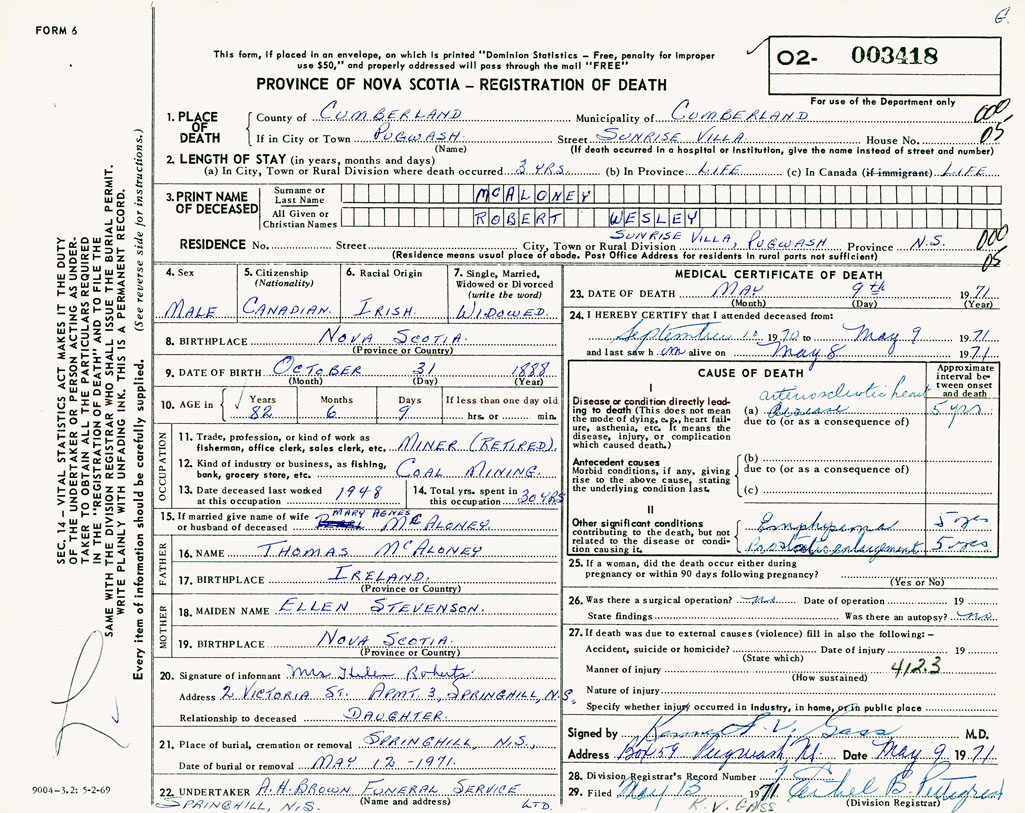 G.
FORM 6
This form, if placed in an envelope, on which is printed "Dominion Statistics – Free, penalty for improper
use $50," and properly addressed will pass through the mail "FREE"
02- 003418
PROVINCE OF NOVA SCOTIA – REGISTRATION OF DEATH
For use of the Department only
1. PLACE OF DEATH
County of CUMBERLAND Municipality of CUMBERLAND 000
If in City or Town PUGWASH. Street SUNRISE VILLA. House No. 05
(Name) (If death occurred in a hospital or institution, give the name instead of street and number)
2. LENGTH OF STAY (in years, months and days)
(a) In City, Town or Rural Division where death occurred 3 YRS. (b) In Province LIFE (c) In Canada (if immigrant) LIFE
3. PRINT NAME OF DECEASED
Surname or Last Name McALONEY
All Given or Christian Names ROBERT WESLEY
RESIDENCE No. Street SUNRISE VILLA, PUGWASH City, Town or Rural Division Province N.S. 000
(Residence means usual place of abode. Post Office Address for residents in rural parts not sufficient) 05
4. Sex MALE
5. Citizenship (Nationality) CANADIAN.
6. Racial Origin IRISH.
7. Single, Married, Widowed or Divorced (write the word) WIDOWED.
8. BIRTHPLACE NOVA SCOTIA.
(Province or Country)
9. DATE OF BIRTH OCTOBER 31 1888
(Month) (Day) (Year)
10. AGE in Years Months Days If less than one day old
82 6 9 hrs. or min.
OCCUPATION
11. Trade, profession, or kind of work as
fisherman, office clerk, sales clerk, etc. MINER (RETIRED).
12. Kind of industry or business, as fishing,
bank, grocery store, etc. COAL MINING.
13. Date deceased last worked
at this occupation 1948
14. Total yrs. spent in
this occupation 30 YRS
15. If married give name of wife MARY AGNES
or husband of deceased McALONEY.
FATHER
16. NAME THOMAS McALONEY
17. BIRTHPLACE IRELAND.
(Province or Country)
MOTHER
18. MAIDEN NAME ELLEN STEVENSON.
19. BIRTHPLACE NOVA SCOTIA.
(Province or Country)
20. Signature of informant Mrs Helen Roberts
Address 2 VICTORIA ST. APMT 3, SPRINGHILL, N.S.
Relationship to deceased DAUGHTER.
21. Place of burial, cremation or removal SPRINGHILL, N.S.,
Date of burial or removal MAY 12 - 1971.
22. UNDERTAKER A.H. BROWN FUNERAL SERVICE
SPRINGHILL, N.S. (Name and address) LTD.
MEDICAL CERTIFICATE OF DEATH
23. DATE OF DEATH MAY 9th 1971
(Month) (Day) (Year)
24. I HEREBY CERTIFY that I attended deceased from:
September 10 1970 to May 9 1971
and last saw him alive on May 8 1971
CAUSE OF DEATH
Approximate interval between onset and death
I
Disease or condition directly leading to death (This does not mean the mode of dying, e.g., heart failure, asthenia, etc. It means the disease, injury, or complication which caused death.)
arteriosclerotic heart
(a) disease 5 yrs
due to (or as a consequence of)
Antecedent causes
Morbid conditions, if any, giving rise to the above cause, stating the underlying condition last.
(b)
due to (or as a consequence of)
(c)
II
Other significant conditions
contributing to the death, but not related to the disease or condition causing it.
Emphysema 5 yrs
Prostatic enlargement 5 yrs
25. If a woman, did the death occur either during
pregnancy or within 90 days following pregnancy?
(Yes or No)
26. Was there a surgical operation? no Date of operation 19
State findings Was there an autopsy? no
27. If death was due to external causes (violence) fill in also the following: –
Accident, suicide or homicide? Date of injury 19
(State which)
Manner of injury 412.3
(How sustained)
Nature of injury
Specify whether injury occurred in industry, in home, or in public place
Signed by F. V. Gass M.D.
Address Box 59 Pugwash NS Date May 9 1971
28. Division Registrar's Record Number 7
29. Filed May 13 1971 Ethel B.
K. V. GASS (Division Registrar)
SEC. 14 – VITAL STATISTICS ACT MAKES IT THE DUTY
OF THE UNDERTAKER OR PERSON ACTING AS UNDERTAKER
TO OBTAIN ALL THE PARTICULARS REQUIRED
IN THE "REGISTRATION OF DEATH" AND TO FILE THE
SAME WITH THE DIVISION REGISTRAR WHO SHALL ISSUE THE BURIAL PERMIT.
WRITE PLAINLY WITH UNFADING INK. THIS IS A PERMANENT RECORD.
Every item of information should be carefully supplied. (See reverse side for instructions.)
9004-3.2: 5-2-69